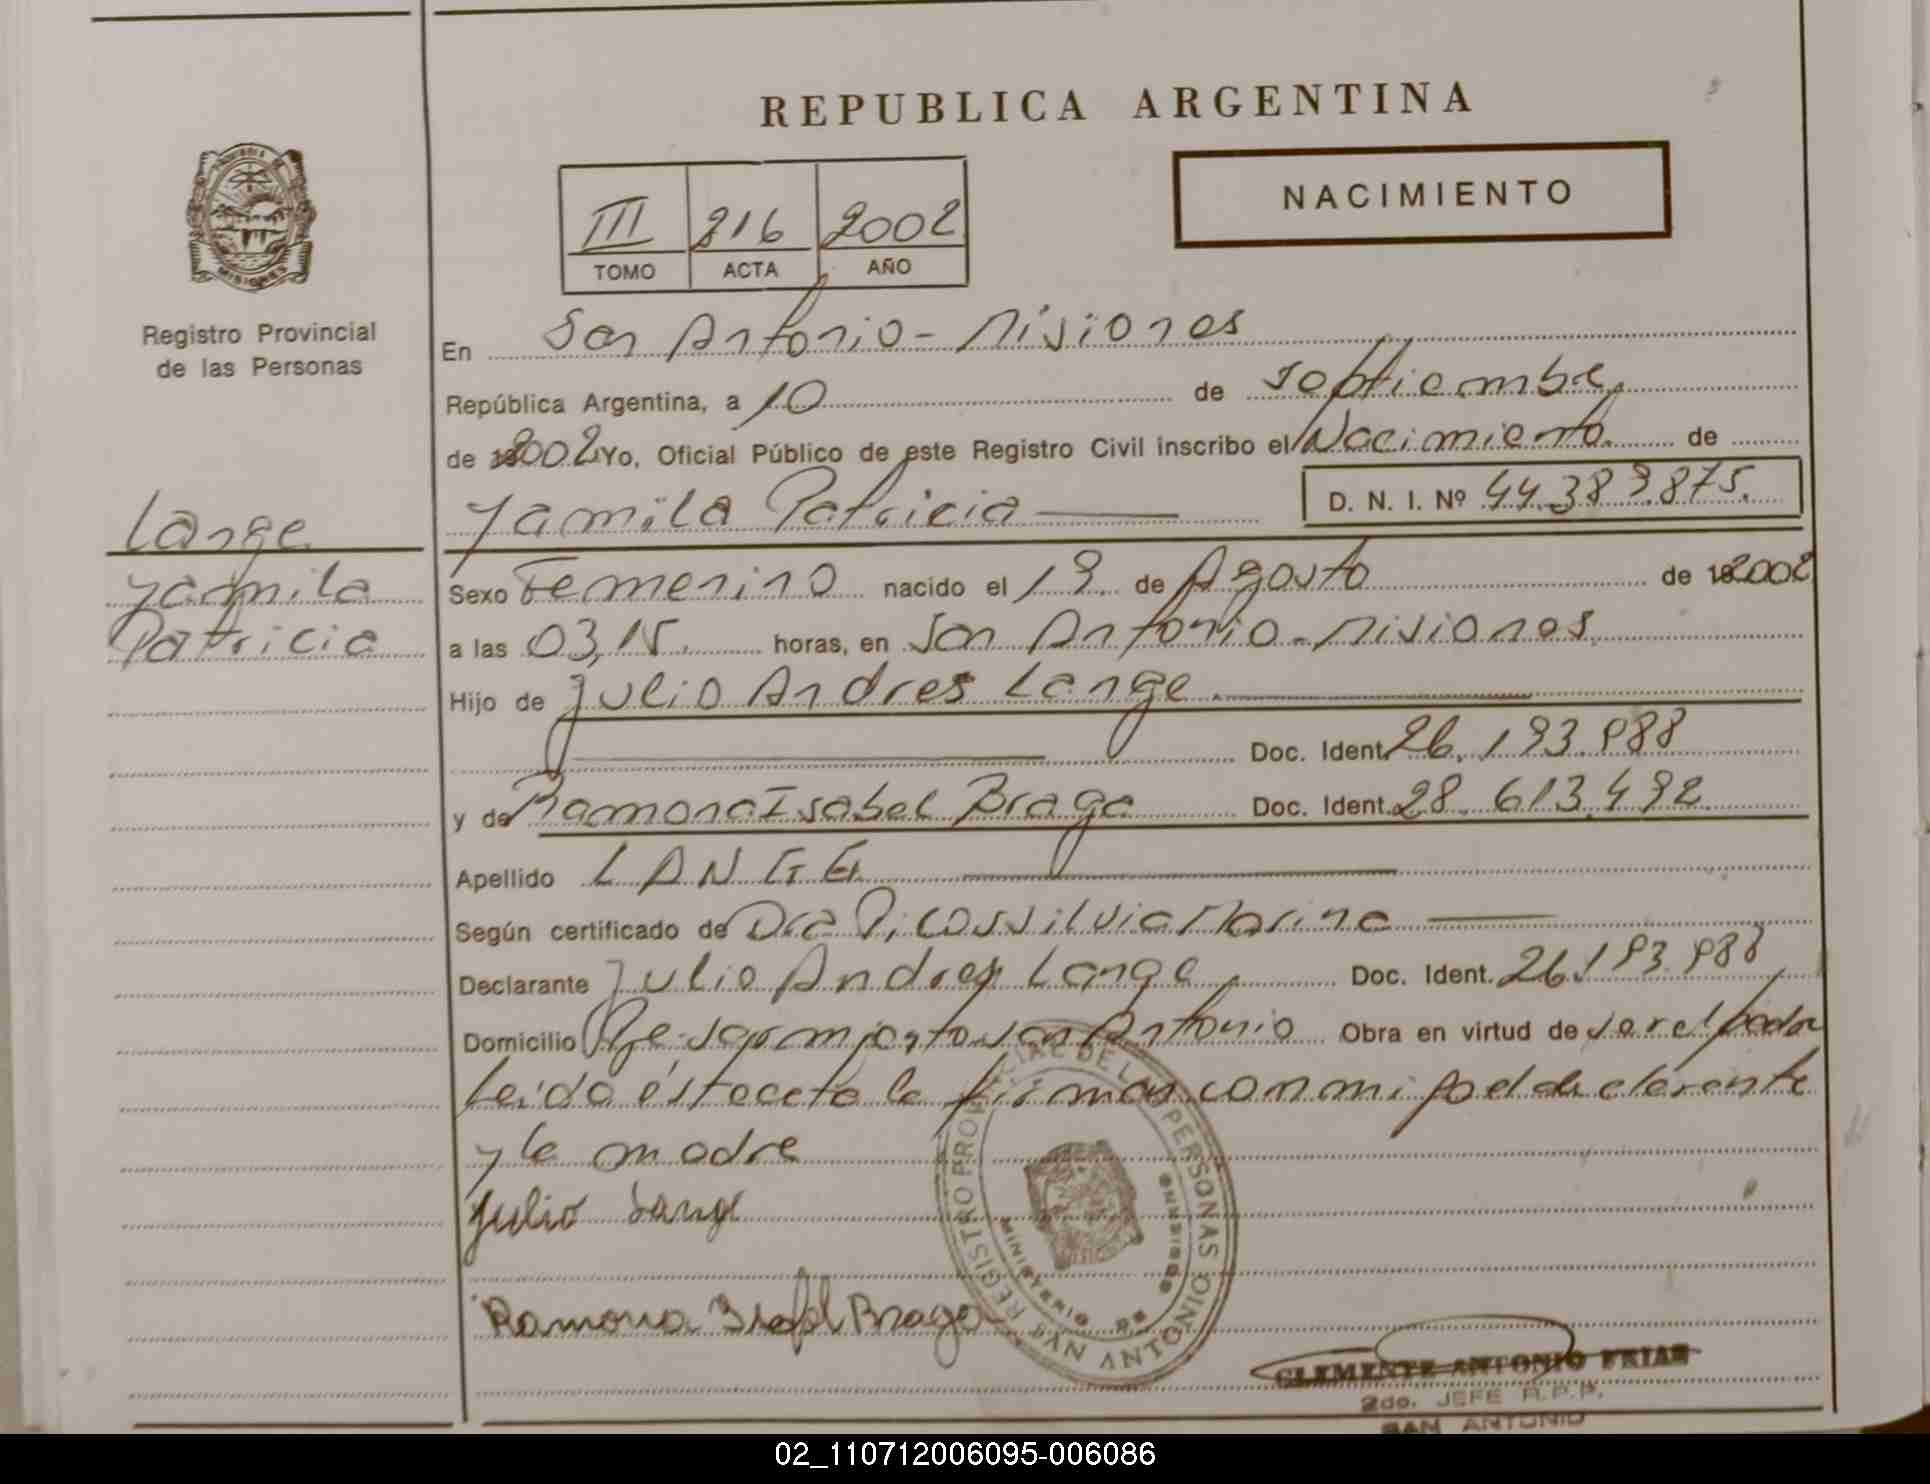 REPUBLICA ARGENTINA
NACIMIENTO
III 216 2002
TOMO ACTA AÑO
MISIONES
Registro Provincial
de las Personas
En San Antonio - Misiones
República Argentina, a 10 de septiembre
de 2002 Yo, Oficial Público de este Registro Civil inscribo el Nacimiento de
Yamila Patricia D. N. I. Nº 44.383.875.
Lange
Yamila
Patricia
Sexo Femenino nacido el 19 de Agosto de 2002
a las 03,15 horas, en San Antonio - Misiones
Hijo de Julio Andres Lange
Doc. Ident. 26.193.988
y de Ramona Isabel Braga Doc. Ident. 28.613.492
Apellido LANGE
Según certificado de Dra Picos Silvia Marina
Declarante Julio Andres Lange Doc. Ident. 26.193.988
Domicilio San Antonio Obra en virtud de ser el padre
Leido ésta acta la firman conmigo el declarante
y la madre
Julio Lange
Ramona Isabel Braga
REGISTRO PROVINCIAL DE LAS PERSONAS
MINISTERIO DE GOBIERNO
SAN ANTONIO
CLEMENTE ANTONIO FRIAS
2do. JEFE R.P.P.
SAN ANTONIO
02_110712006095-006086